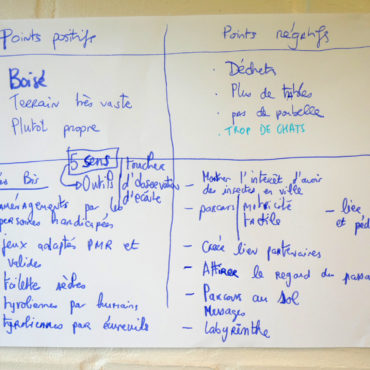 Points positifs
Boisé
Terrain très vaste
Plutôt propre
Points négatifs
. Déchets
. Plus de tables
. pas de poubelle
TROP DE CHATS
5 sens
→ Outils
Toucher
d'observation
d'écoute
Bis
aménagements par les
personnes handicapées
jeux adaptés PMR et
valides
toilette sèches
tyroliennes par humains
tyroliennes par écureuils
- Montrer l'intérêt d'avoir
des insectes en ville
- parcours motricité
tactile
- lien
et péd
- Créée lien partenaires
- Attirer le regard du passa
- Parcours au sol
Messages
- Labyrinthe